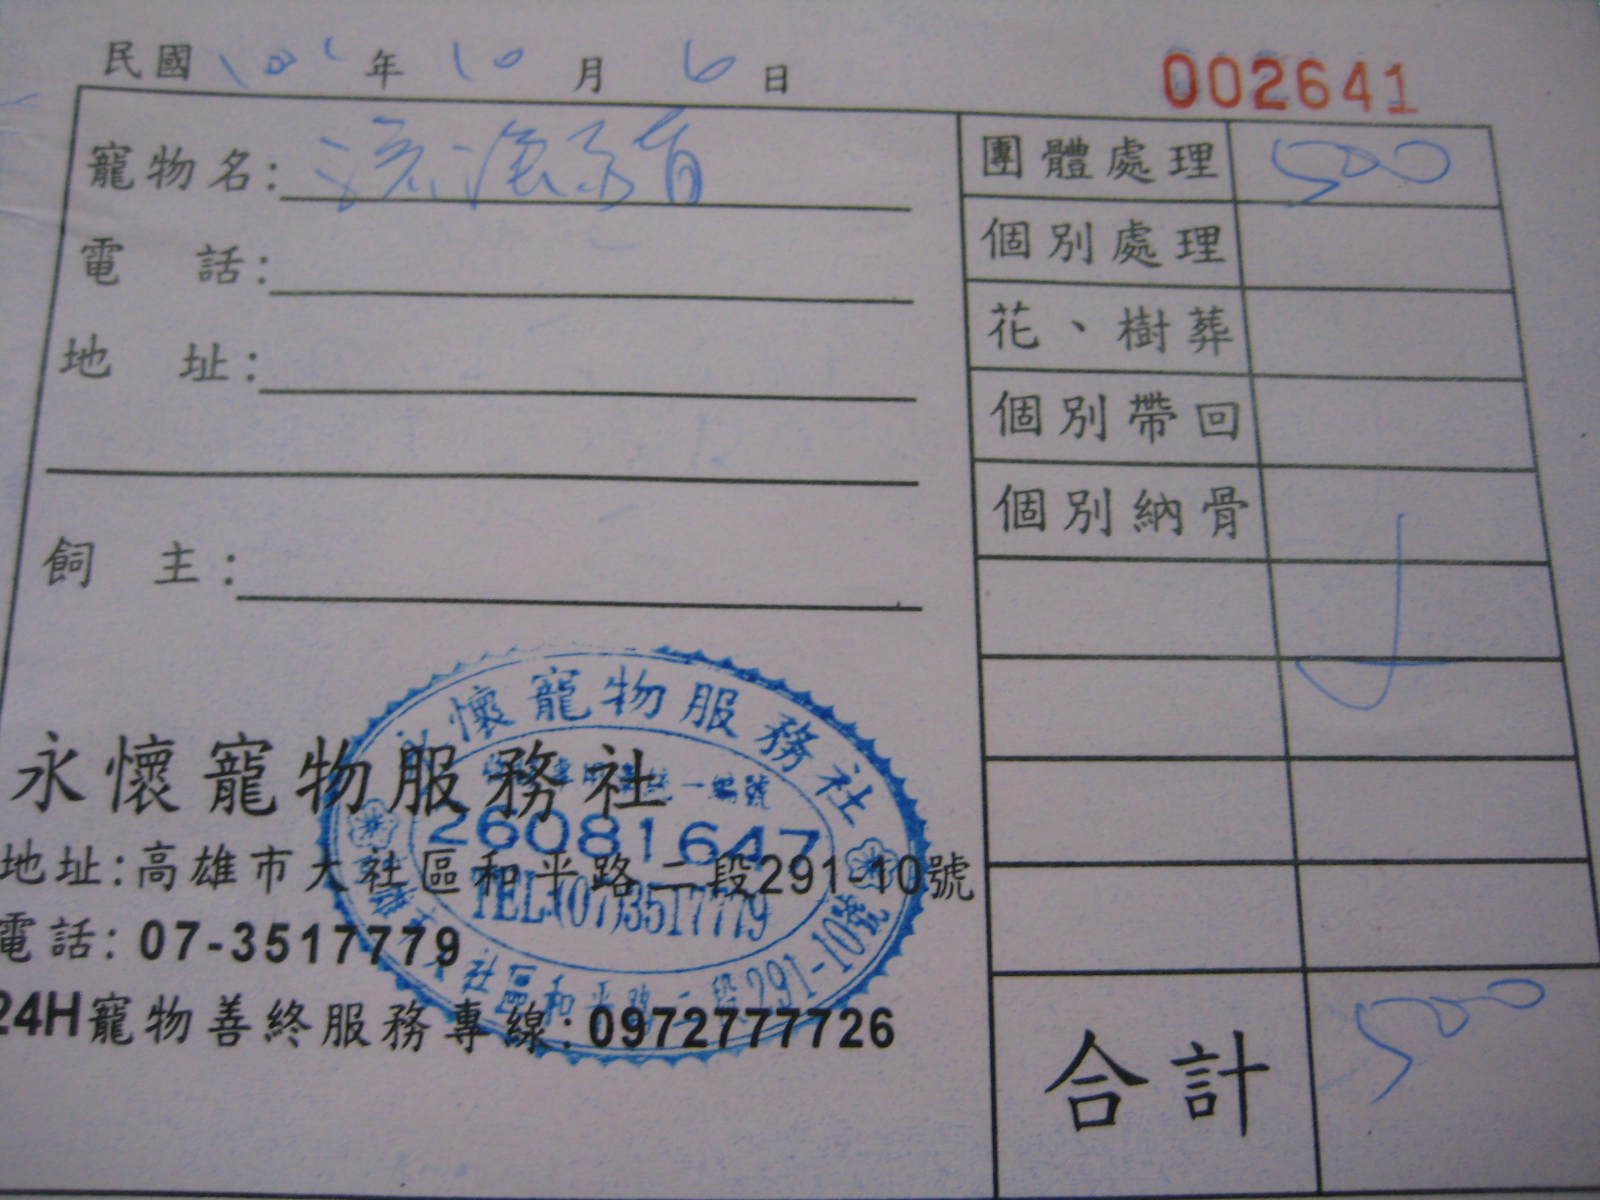 民國 101 年 10 月 6 日
002641
寵物名: 流浪
電 話:
地 址:
飼 主:
團體處理 500
個別處理
花、樹葬
個別帶回
個別納骨
合計 500
永懷寵物服務社
地址:高雄市大社區和平路二段291-10號
電話: 07-3517779
24H寵物善終服務專線: 0972777726
永懷寵物服務社
統一編號
26081647
TEL:(07)3517779
大社區和平路二段291-10號